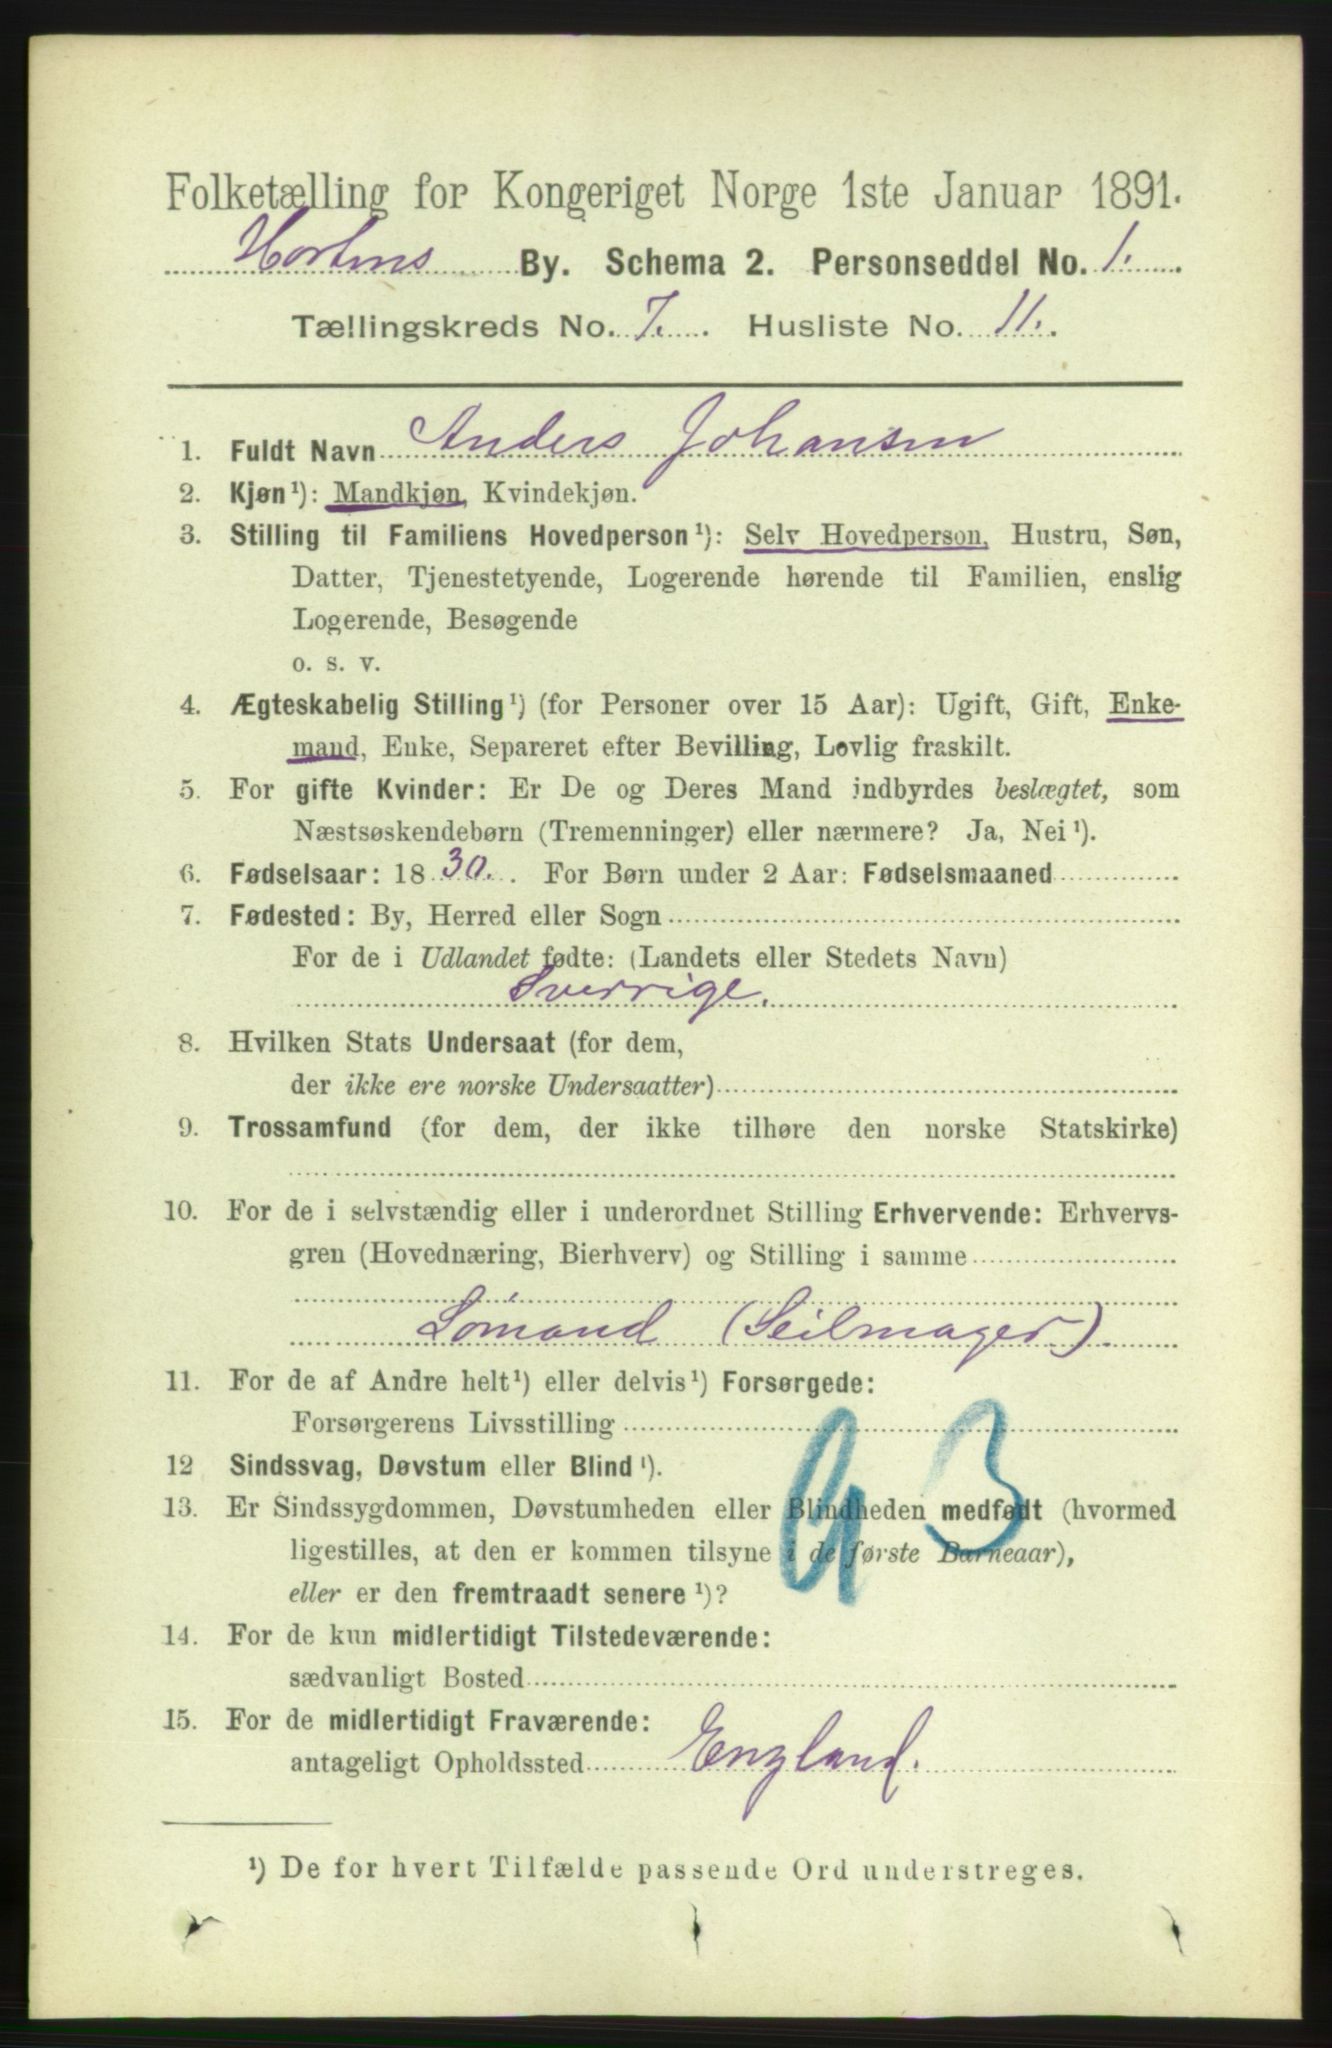 Folketælling for Kongeriget Norge 1ste Januar 1891.
Hortens By. Schema 2. Personseddel No. 1.
Tællingskreds No. 7. Husliste No. 11.
1. Fuldt Navn Anders Johansen
2. Kjøn¹): Mandkjøn, Kvindekjøn.
3. Stilling til Familiens Hovedperson¹): Selv Hovedperson, Hustru, Søn,
Datter, Tjenestetyende, Logerende hørende til Familien, enslig
Logerende, Besøgende
o. s. v.
4. Ægteskabelig Stilling¹) (for Personer over 15 Aar): Ugift, Gift, Enke-
mand, Enke, Separeret efter Bevilling, Lovlig fraskilt.
5. For gifte Kvinder: Er De og Deres Mand indbyrdes beslægtet, som
Næstsøskendebørn (Tremenninger) eller nærmere? Ja, Nei¹).
6. Fødselsaar: 1830. For Børn under 2 Aar: Fødselsmaaned
7. Fødested: By, Herred eller Sogn
For de i Udlandet fødte: (Landets eller Stedets Navn)
Sverrige.
8. Hvilken Stats Undersaat (for dem,
der ikke ere norske Undersaatter)
9. Trossamfund (for dem, der ikke tilhøre den norske Statskirke)
10. For de i selvstændig eller i underordnet Stilling Erhvervende: Erhvervs-
gren (Hovednæring, Bierhverv) og Stilling i samme
Sømand (Seilmager).
11. For de af Andre helt¹) eller delvis¹) Forsørgede:
Forsørgerens Livsstilling
12 Sindssvag, Døvstum eller Blind¹).
13. Er Sindssygdommen, Døvstumheden eller Blindheden medfødt (hvormed
ligestilles, at den er kommen tilsyne i de første Barneaar),
eller er den fremtraadt senere¹)?
14. For de kun midlertidigt Tilstedeværende:
sædvanligt Bosted
15. For de midlertidigt Fraværende:
antageligt Opholdssted England.
¹) De for hvert Tilfælde passende Ord understreges.